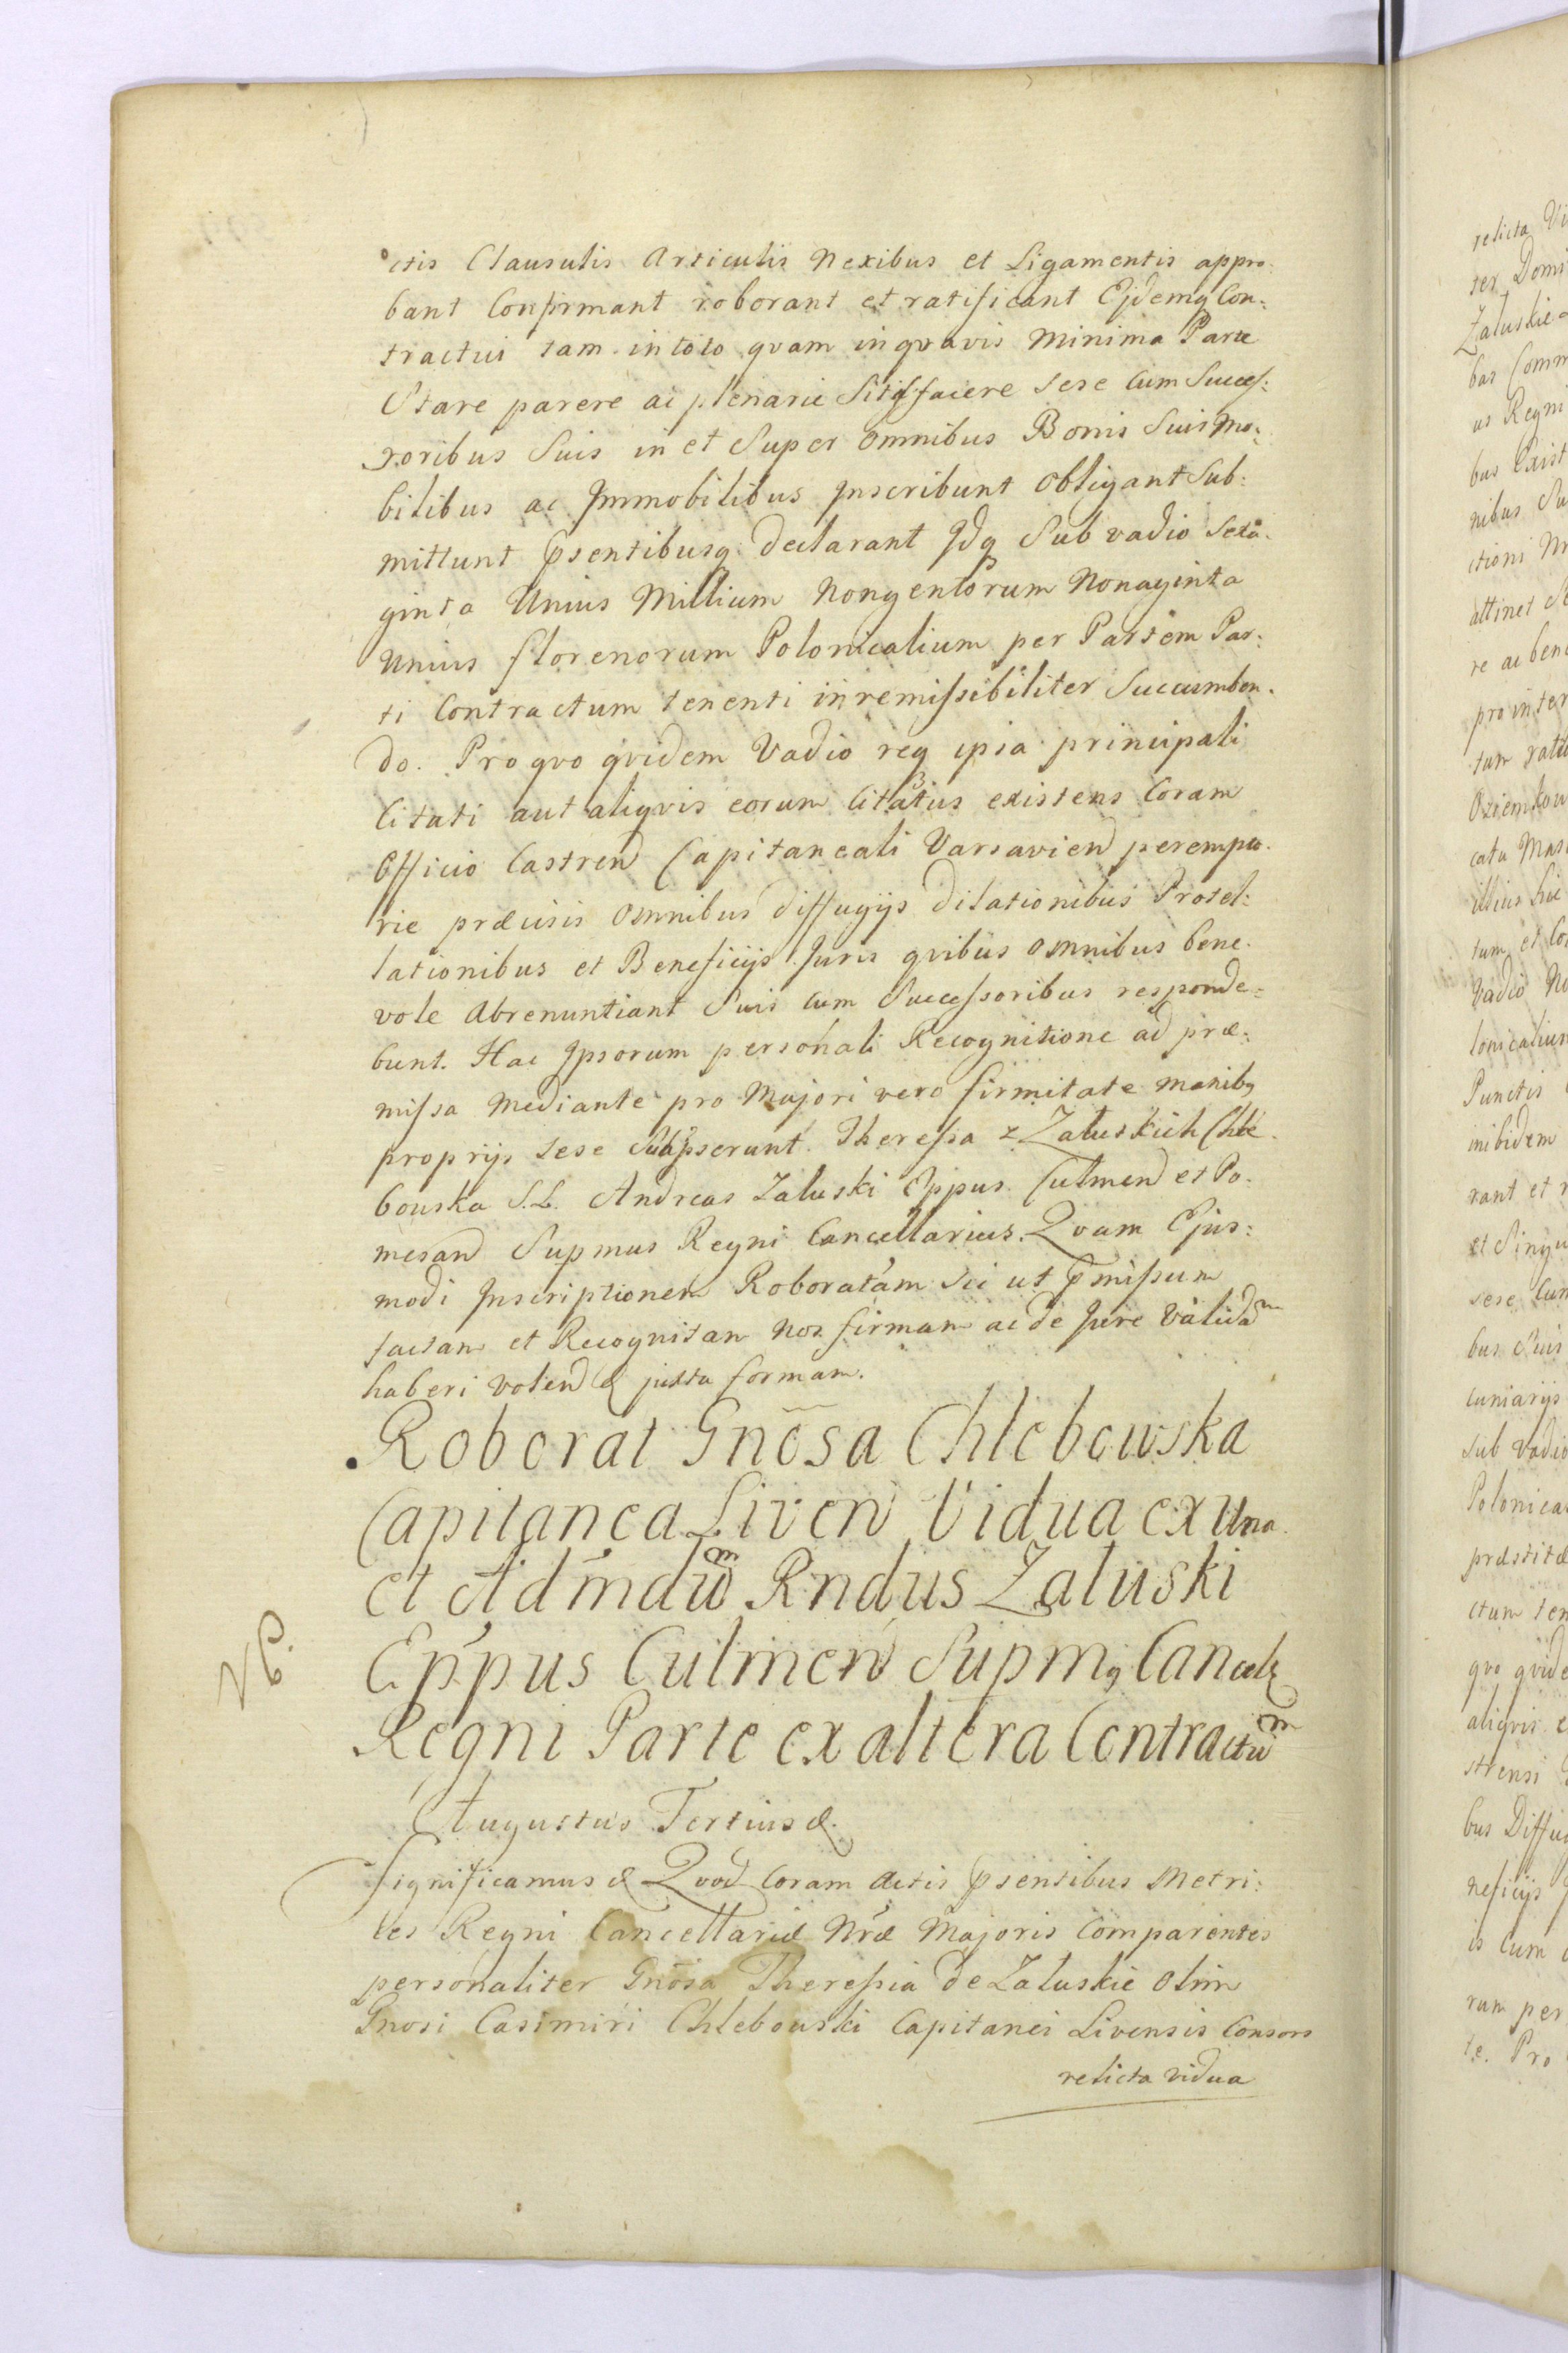 ctis Clausulis Articulis Nexibus et Ligamentis appro-
bant Confirmant roborant et ratificant Ejdemq Con:
tractui tam in toto qvam in qvavis Minima Parte
Stare parere ac plenarie Satisfacere sese Cum Succes:
soribus Suis in et Super Omnibus Bonis Suis Mo:
bilibus ac Immobilibus Inscribunt Obligant Sub:
mittunt Psentibusq declarant Idq Sub vadio Sexa-
ginta Unius Millium Nongentorum Nonaginta
Unius florenorum Polonicalium per Partem Par:
ti Contractum tenenti inremissibiliter Succumben-
do. Pro qvo qvidem Vadio req ipsa principali
Citati aut aliqvis eorum Citatus existens Coram
Officio Castren Capitaneali Varsavien perempto-
rie præcisis Omnibus diffugijs dilationibus Protel:
lationibus et Beneficijs Juris qvibus Omnibus bene-
vole Abrenuntiant Suis cum Successoribus responde-
bunt. Hac Ipsorum personali Recognitione ad præ:
missa Mediante pro Majori vero firmitate manibq
proprijs sese Subscripserunt. Theressa z Zaluskich Chle-
bouska S.L. Andreas Zaluski Eppus Culmen et Po-
mesan Supmus Regni Cancellarius. Qvam Ejus:
modi Inscriptionem Roboratam sic ut Pmissum
factam et Recognitam Nos firmam ac de Jure Validam
haberi volen & juxta formam.
Roborat Gnosa Chlebowska
Capitanea Liven Vidua ex Una
et Admdum Rndus Zaluski
Eppus Culmen Supmq Cancel
Regni Parte ex altera Contractum
VP.
Augustus Tertius &.
Significamus & Qvod Coram Actis Psentibus Metri:
ces Regni Cancellariæ Nræ Majoris Comparentes
personaliter Gnosa Theressia de Zaluskie Olim
Gnosi Casimiri Chlebouski Capitanei Livensis Consors
relicta vidua
relicta Vi
ter Domi
Zaluskie
bas Comm
us Regni
bus Exist
nibus Su
ctioni
attinet
re ac bene
pro inter
tam rati
catu Mas
illius hic
tum et Co
Vadio No
lonicalium
Punctis
inibidem
rant et r
et Singu
sese Cum
bus Suis
cuniarijs
Sub Vadio
Polonica
præstitæ
ctum ten
qvo qvide
aliqvis e
strensi
bus Diffug
neficijs J
is Cum
rum per
te. Pro